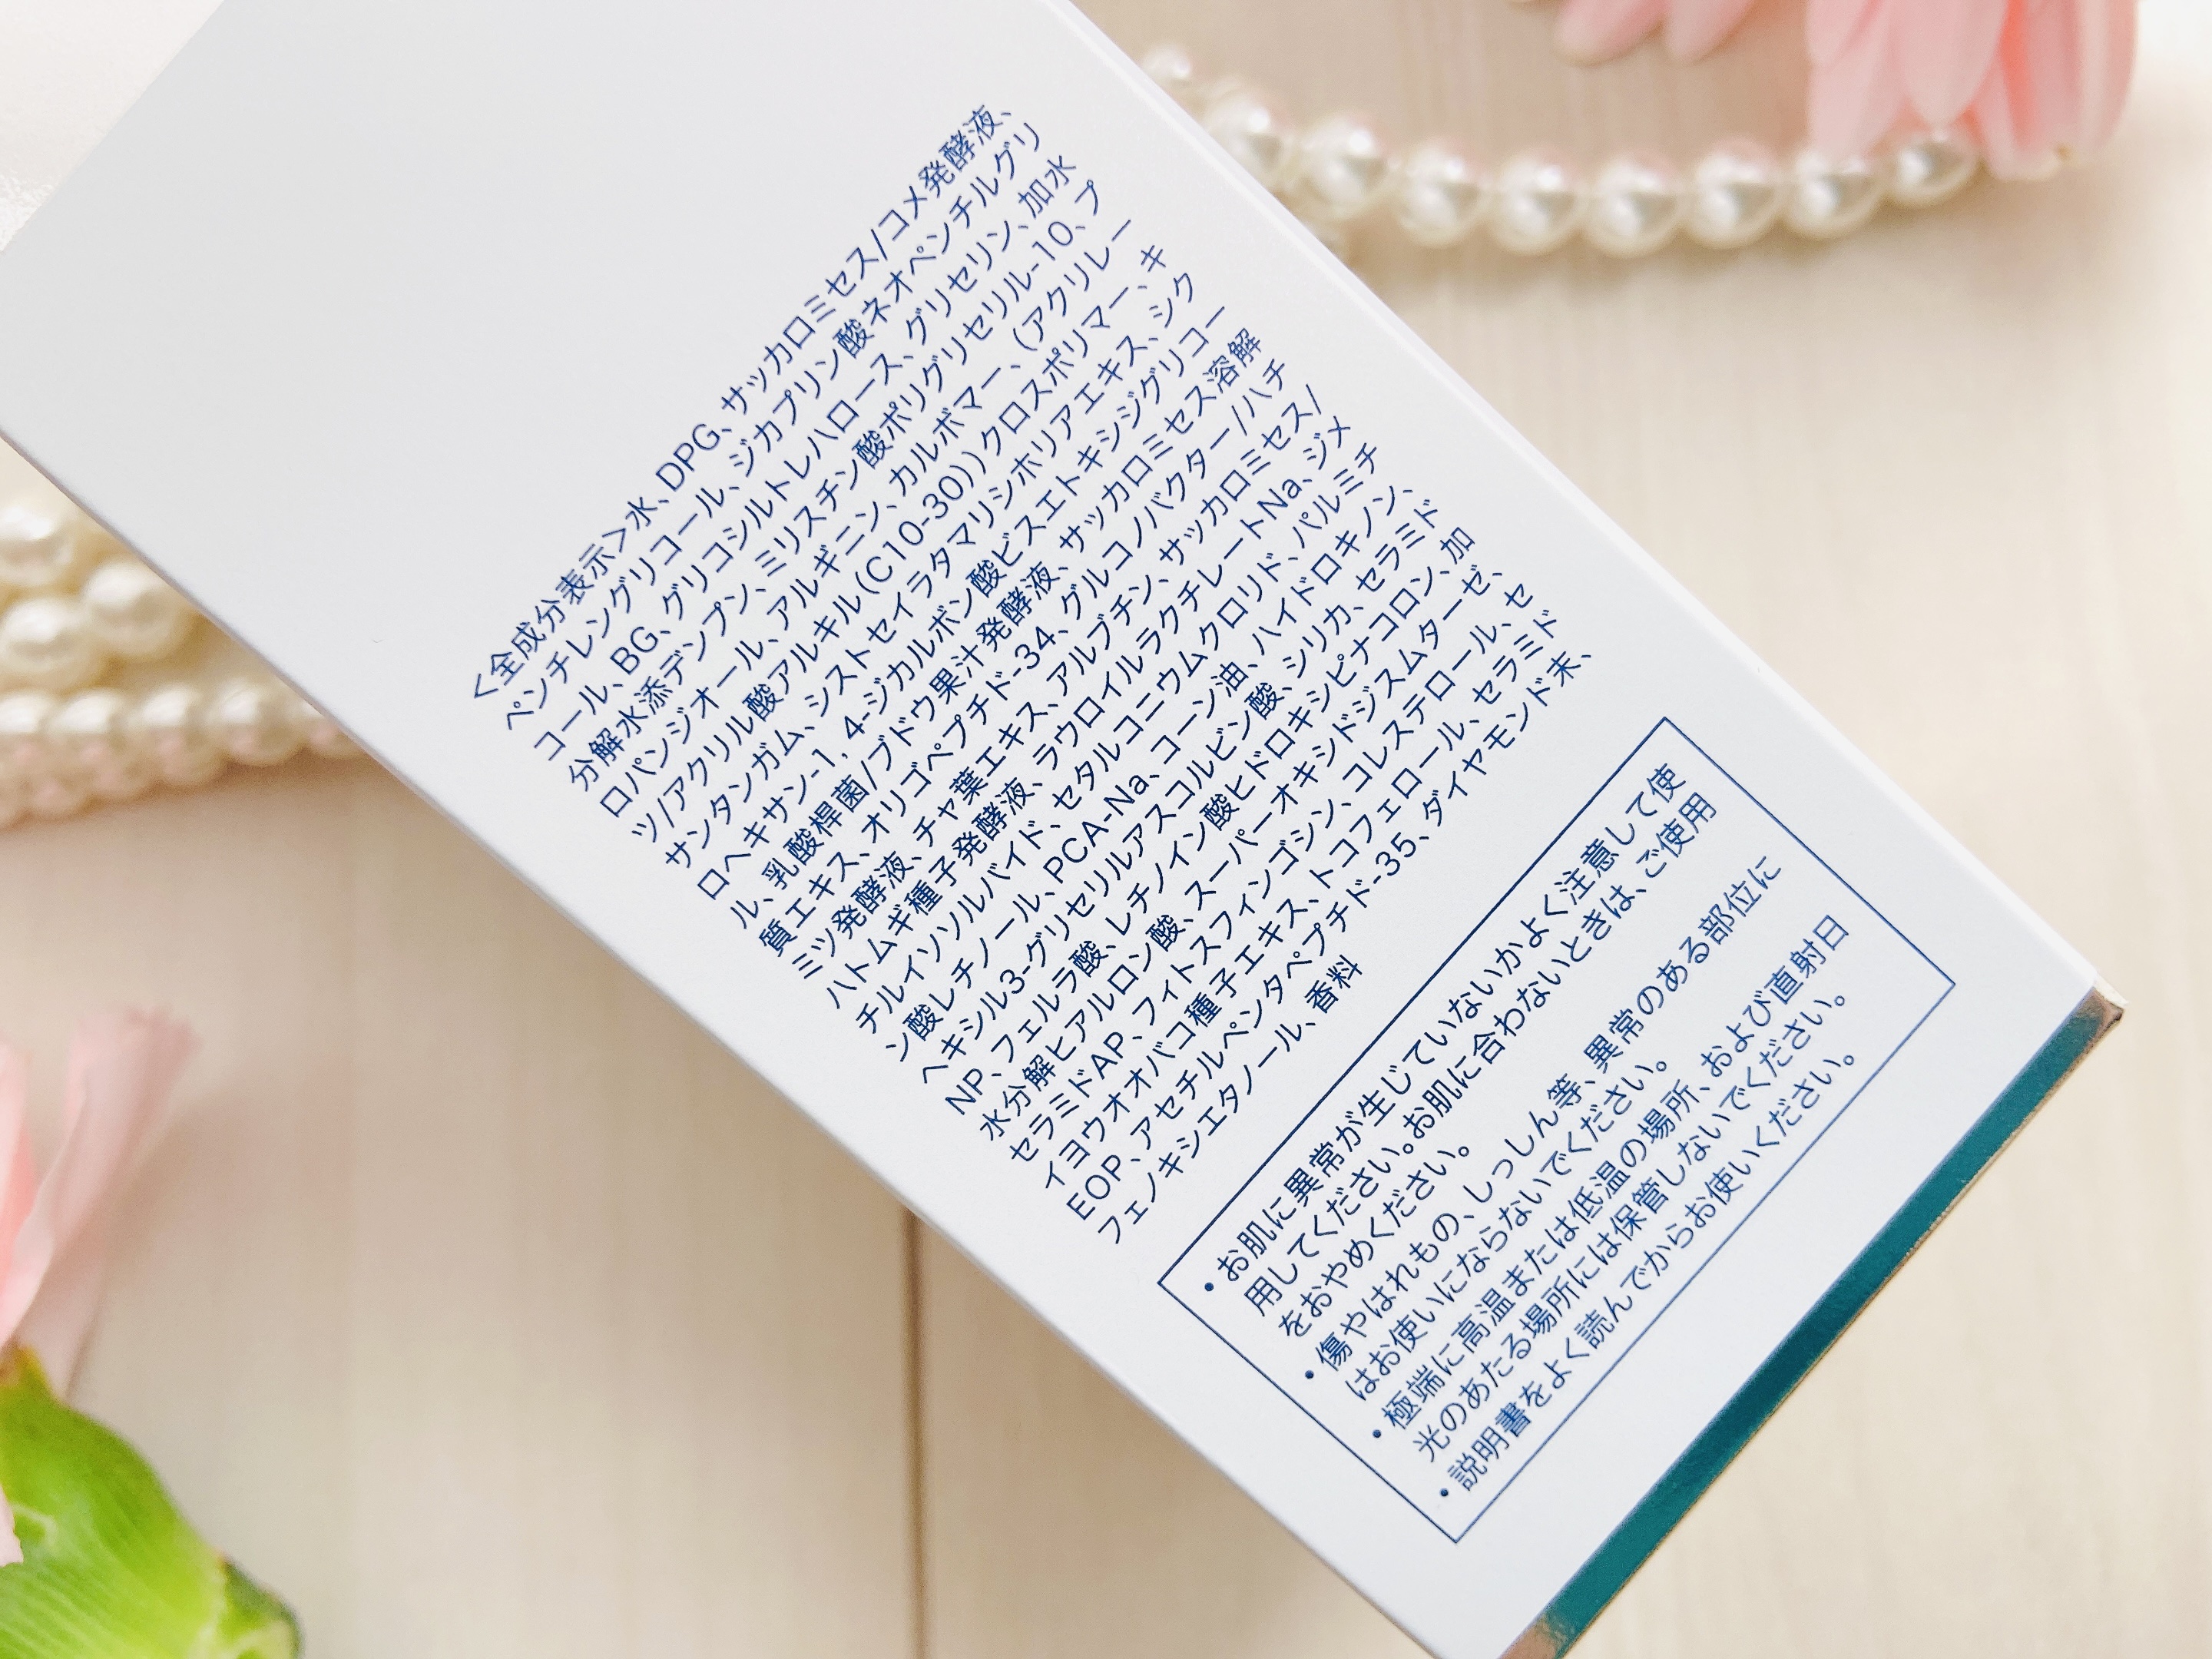 ＜全成分表示＞水、DPG、サッカロミセス/コメ発酵液、
ペンチレングリコール、ジカプリン酸ネオペンチルグリ
コール、BG、グリコシルトレハロース、グリセリン、加水
分解水添デンプン、ミリスチン酸ポリグリセリル-10、プ
ロパンジオール、アルギニン、カルボマー、(アクリレー
ツ/アクリル酸アルキル(C10-30))クロスポリマー、キ
サンタンガム、シストセイラタマリシホリアエキス、シク
ロヘキサン-1, 4-ジカルボン酸ビスエトキシジグリコー
ル、乳酸桿菌/ブドウ果汁発酵液、サッカロミセス溶解
質エキス、オリゴペプチド-34、グルコノバクター/ハチ
ミツ発酵液、チャ葉エキス、アルブチン、サッカロミセス/
ハトムギ種子発酵液、ラウロイルラクチレートNa、ジメ
チルイソソルバイド、セタルコニウムクロリド、パルミチ
ン酸レチノール、PCA-Na、コーン油、ハイドロキノン、
ヘキシル3-グリセリルアスコルビン酸、シリカ、セラミド
NP、フェルラ酸、レチノイン酸ヒドロキシピナコロン、加
水分解ヒアルロン酸、スーパーオキシドジスムターゼ、
セラミドAP、フィトスフィンゴシン、コレステロール、セ
イヨウオオバコ種子エキス、トコフェロール、セラミド
EOP、アセチルペンタペプチド-35、ダイヤモンド末、
フェノキシエタノール、香料
・お肌に異常が生じていないかよく注意して使
用してください。お肌に合わないときは、ご使用
をおやめください。
・傷やはれもの、しっしん等、異常のある部位に
はお使いにならないでください。
・極端に高温または低温の場所、および直射日
光のあたる場所には保管しないでください。
・説明書をよく読んでからお使いください。